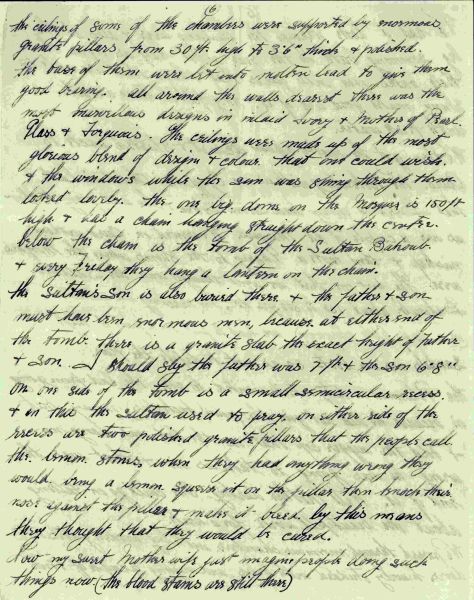 6
the ceilings of some of the chambers were supported by enormous
granite pillars from 30 ft high to 3'6" thick & polished.
the base of them were let into molten lead to give them
good bearing. all around the walls dearest there was the
most marvellous designs in inlaid Ivory & Mother of Pearl.
Glass & Torquous. The ceilings were made up of the most
glorious blend of design & colour that one could wish.
& the windows while the sun was shing through them
looked lovely. the one big dome on the Mosques is 150 ft
high & has a chain hanging straight down the centre.
below the chain is the tomb of the Sultan
& every Friday they hang a lantern on this chain.
the Sultan's Son is also buried there & the father & son
must have been enormous men, because at either end of
the tomb there is a granite slab the exact height of Father
& Son. I should say the father was 7 ft & the son 6'8"
on one side of the tomb is a small semicircular recess.
& in this the Sultan used to pray. on either side of the
recess are two polished granite pillars that the people call
the lemon stones, when they had anything wrong they
would bring a lemon squeeze it on the pillar then knock their
nose against the pillar & make it bleed by this means
they thought that they would be cured.
Now my sweet Mother wife just imagine people doing such
things now (the blood stains are still there)